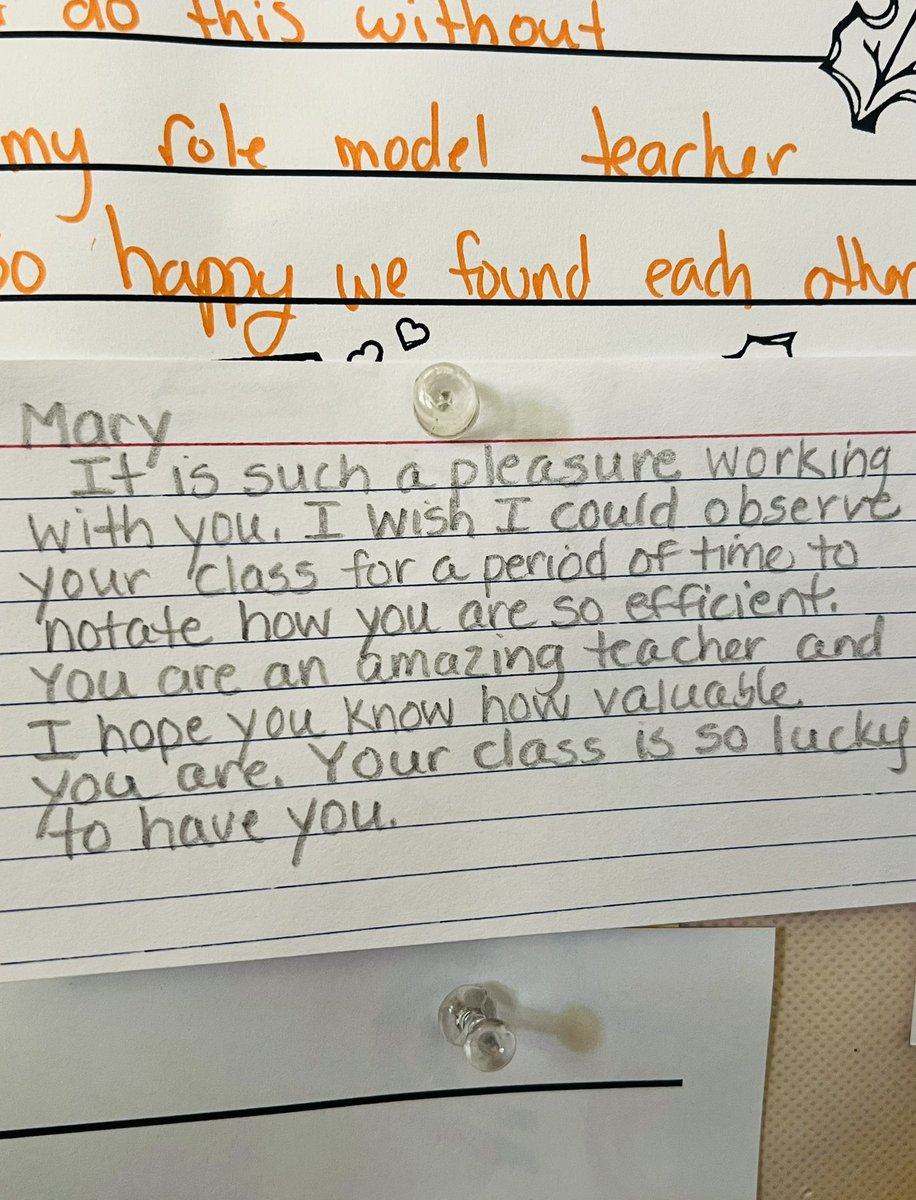 do this without
my role model teacher
happy we found each other
Mary
It is such a pleasure working
with you. I wish I could observe
your class for a period of time to
notate how you are so efficient.
You are an amazing teacher and
I hope you know how valuable
you are. Your class is so lucky
to have you.